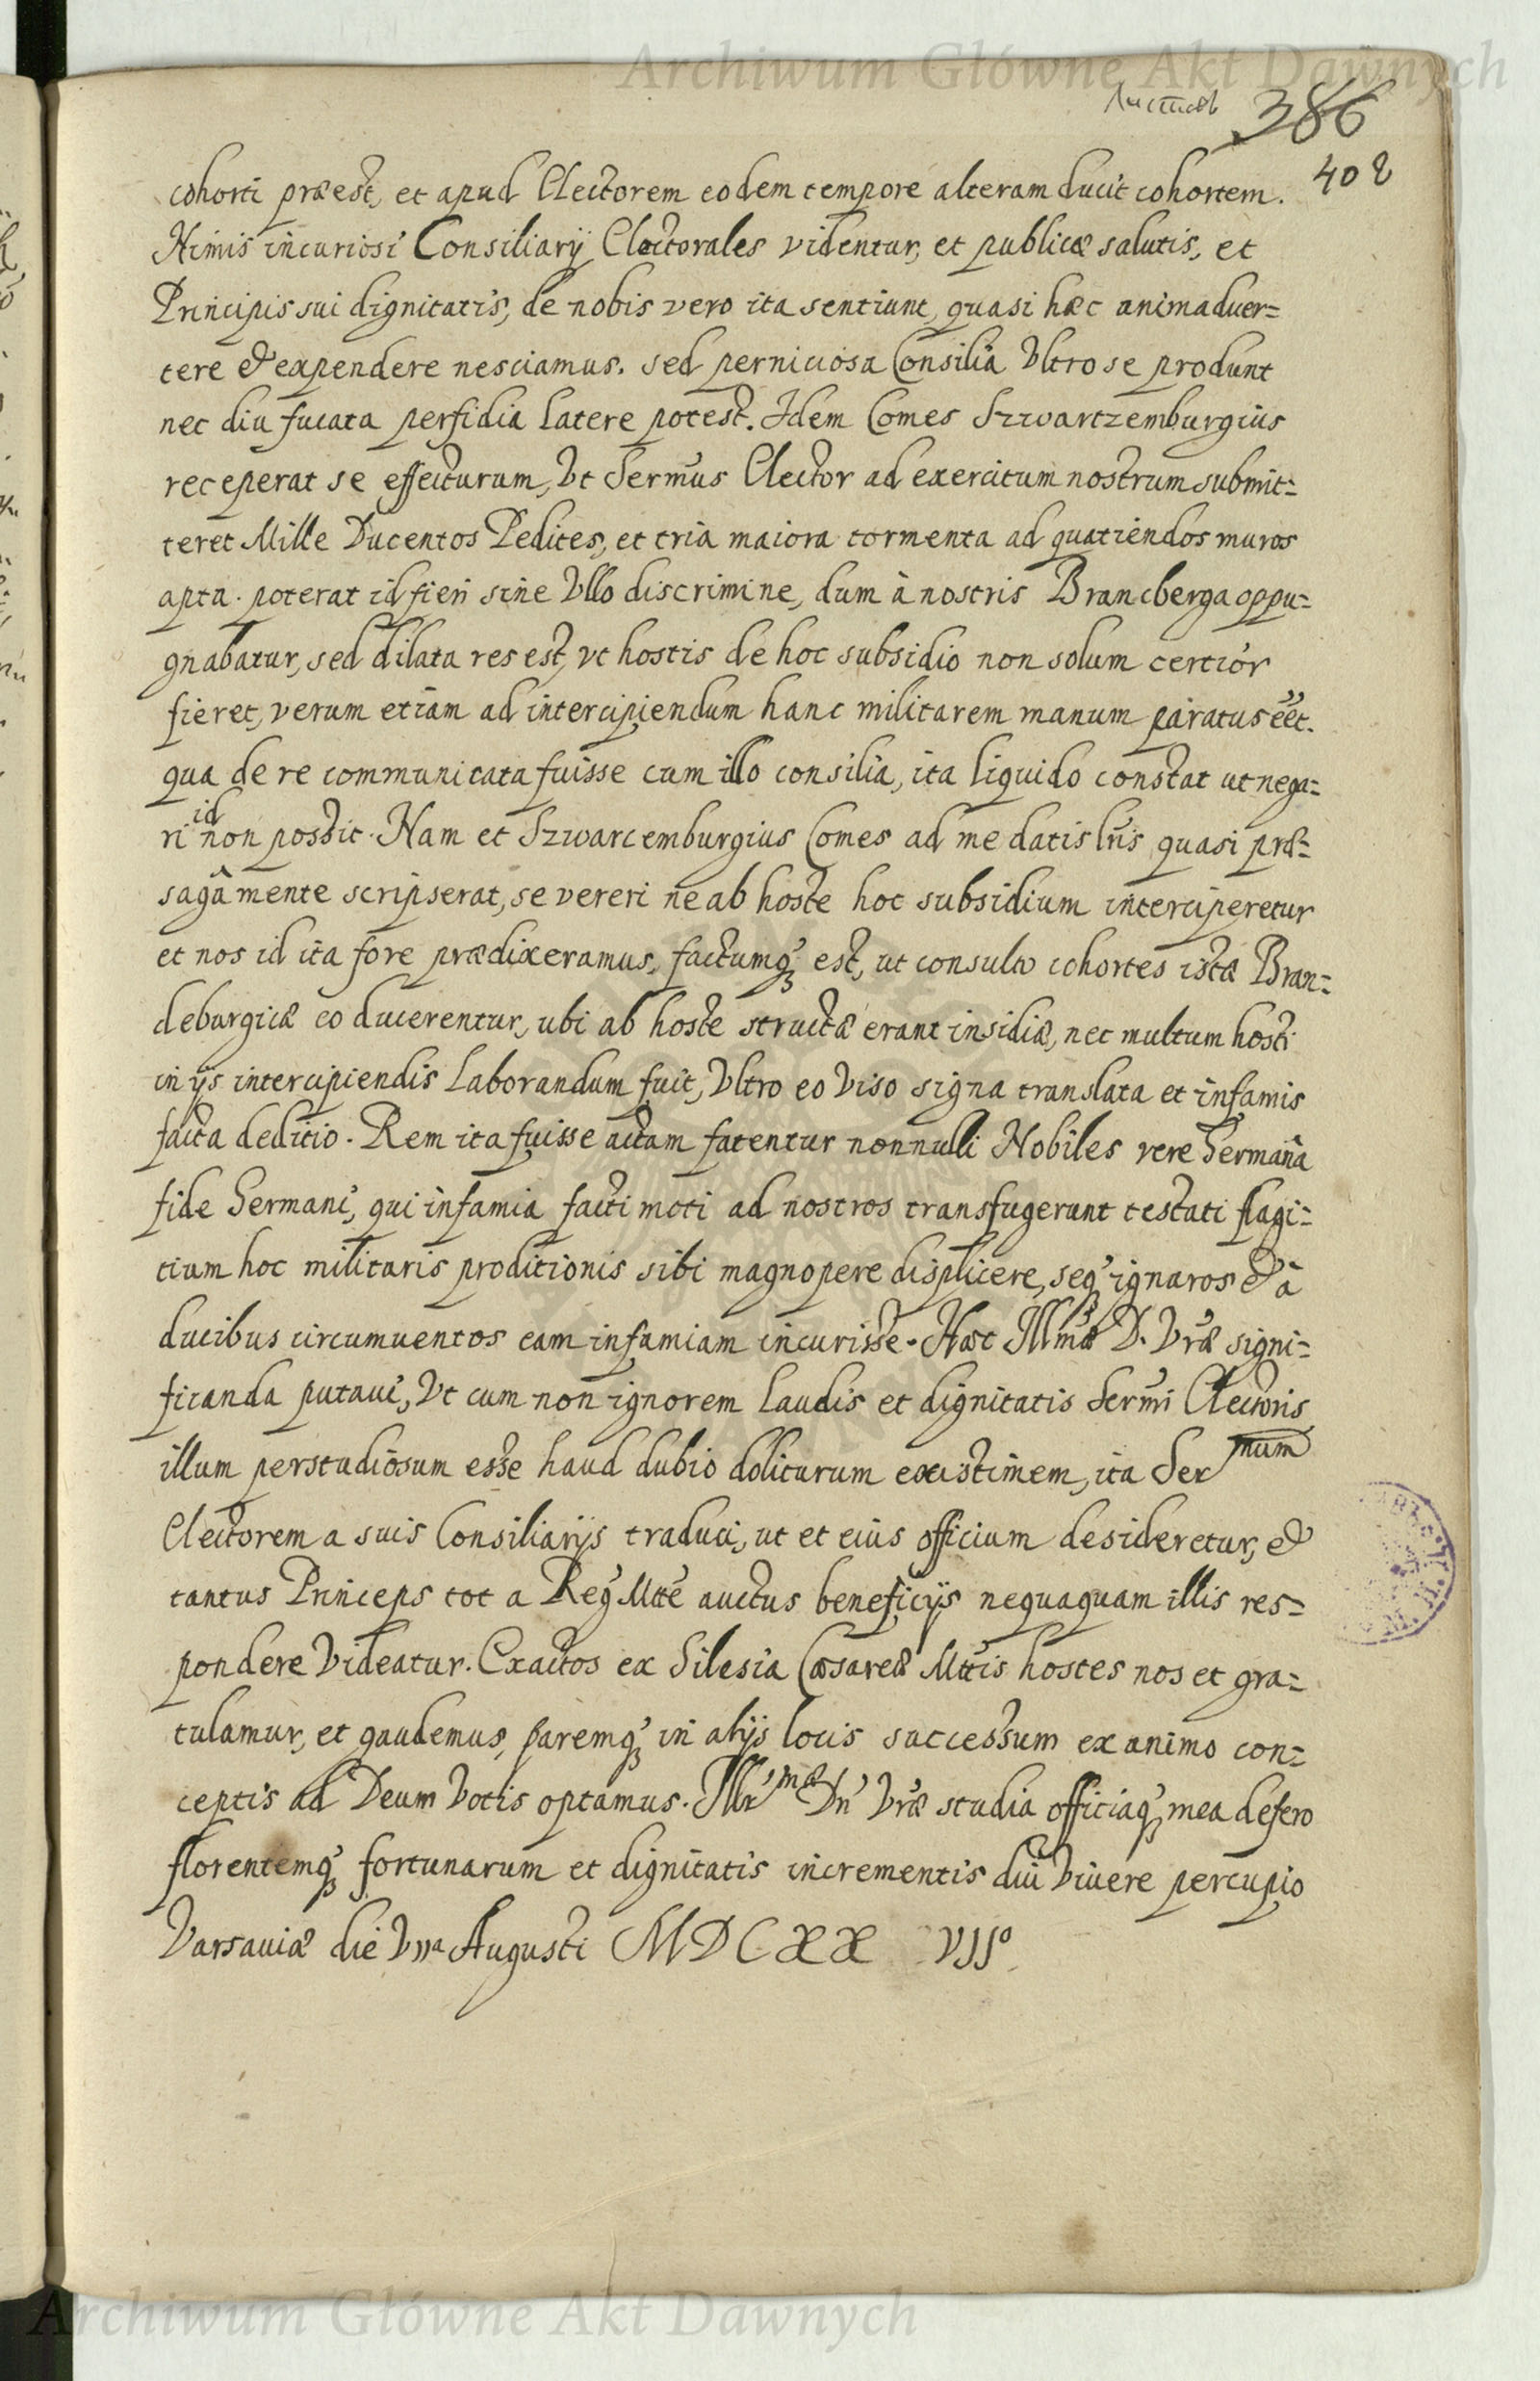 Archiwum Główne Akt Dawnych
Листовъ 386
408
cohorti præest, et apud Electorem eodem tempore alteram ducit cohortem.
Nimis incuriosi Consiliarij Electorales videntur, et publicæ salutis, et
Principis sui dignitatis, de nobis vero ita sentiunt, quasi hæc animaduer=
tere & expendere nesciamus. sed perniciosa Consilia Vltro se produnt
nec diu fucata perfidia latere potest. Idem Comes Szwartzemburgius
receperat se effecturum, Vt Sermus Elector ad exercitum nostrum submit=
teret Mille Ducentos Pedites, et tria maiora tormenta ad quatiendos muros
apta. poterat id fieri sine Vllo discrimine, dum à nostris Brancberga oppu=
gnabatur, sed dilata res est, vt hostis de hoc subsidio non solum certior
fieret, verum etiam ad intercipiendum hanc militarem manum paratus eēt.
qua de re communicata fuisse cum illo consilia, ita liquido constat ut nega=
ri id non possit. Nam et Szwarcemburgius Comes ad me datis lrīs quasi præ=
sagâ mente scripserat, se vereri ne ab hoste hoc subsidium interciperetur
et nos id ita fore prædixeramus, factumq₃ est, ut consulto cohortes istæ Bran=
deburgicæ eo ducerentur, ubi ab hoste structæ erant insidiæ, nec multum hosti
in ijs intercipiendis laborandum fuit, Vltro eo Viso signa translata et infamis
facta deditio. Rem ita fuisse actam fatentur nonnulli Nobiles vere Germanâ
fide Germani, qui infamia facti moti ad nostros transfugerunt testati flagi=
tium hoc militaris proditionis sibi magnopere displicere, seq₃ ignaros & à
ducibus circumuentos eam infamiam incurisse. Hæc Illmæ D. Vræ signi=
ficanda putaui, Vt cum non ignorem laudis et dignitatis Sermi Electoris
illum perstudiosum esse haud dubio doliturum existimem, ita Ser mum
Electorem a suis Consiliarijs traduci, ut et eius officium desideretur, &
tantus Princeps tot a Reg Mtte auctus beneficijs nequaquam illis res=
pondere Videatur. Exactos ex Silesia Cæsareæ Mttis hostes nos et gra=
tulamur, et gaudemus, paremq₃ in alijs locis successum ex animo con=
ceptis ad Deum Votis optamus. Illr mæ Dn Vræ studia officiaq₃ mea defero
florentemq₃ fortunarum et dignitatis incrementis diu Viuere percupio
Varsauiæ die VIIa Augusti MDCXX VIIo
Archiwum Główne Akt Dawnych